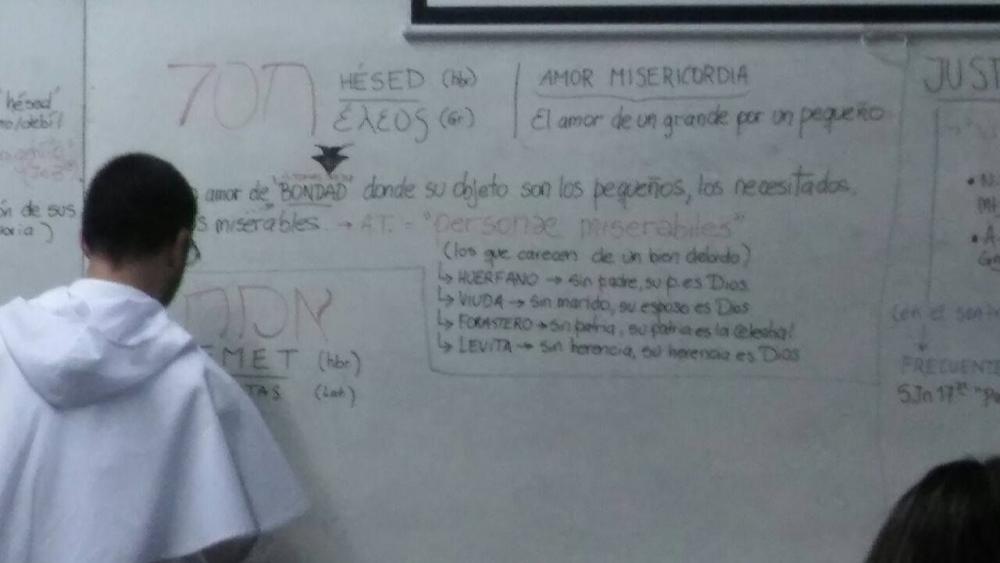 hésed'
חסד
HÉSED (hbr)
έλεος (Gr)
AMOR MISERICORDIA
El amor de un grande por un pequeño
amor de BONDAD donde su objeto son los pequeños, los necesitados.
miserables. → A.T. = "personae miserabiles"
(los que carecen de un bien debido)
↳ HUÉRFANO → sin padre, su p. es Dios
↳ VIUDA → sin marido, su esposo es Dios
↳ FORASTERO → sin patria, su patria es la
↳ LEVITA → sin herencia, su herencia es Dios
אמת
EMET (hbr)
TAS (Lat)
ón de sus
JUST
FRECUENTE